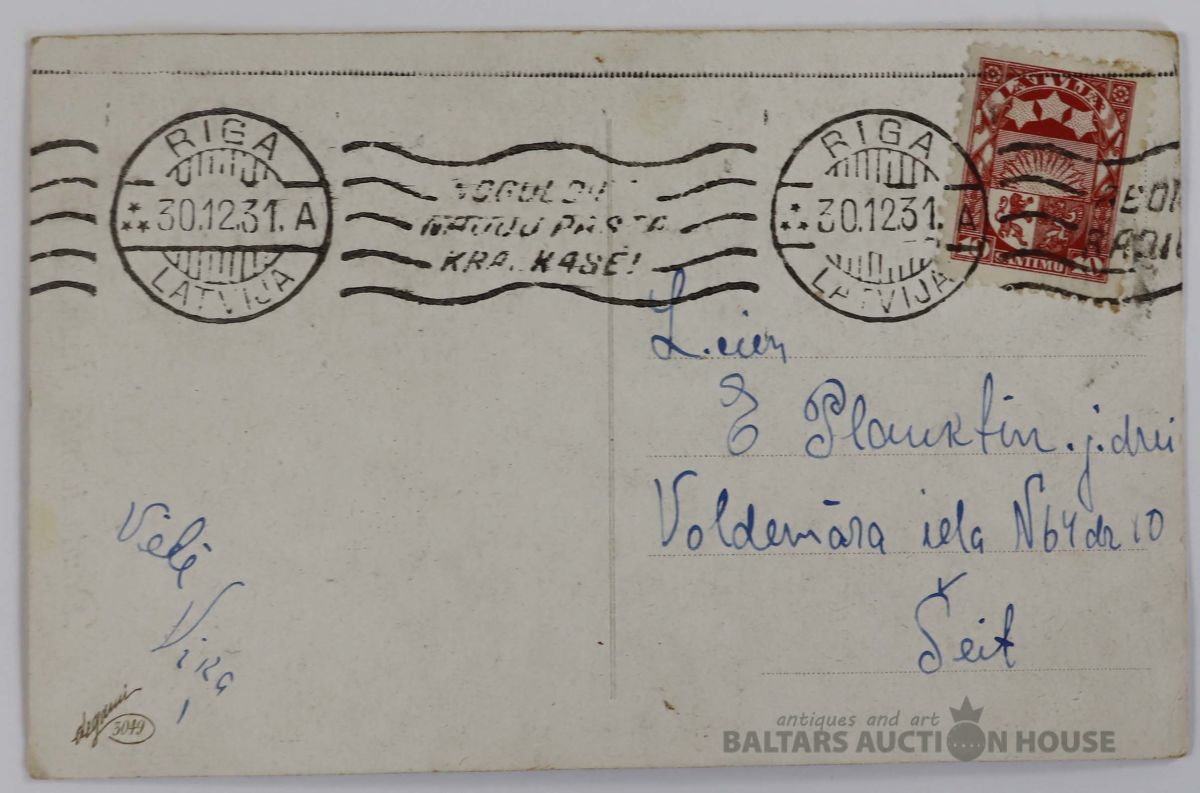 RIGA
30.12.31. A
LATVIJA
NOGULDI
NAUDU PASTA
KRĀJ KASĒ!
RIGA
30.12.31. A
LATVIJA
LATVIJA
SANTIMU
L.cien
E Planktin.j.dzei
Voldemāra iela N64 dz 10
Šeit
Vēlē
Vira
degami
3049
antiques and art
BALTARS AUCTION HOUSE